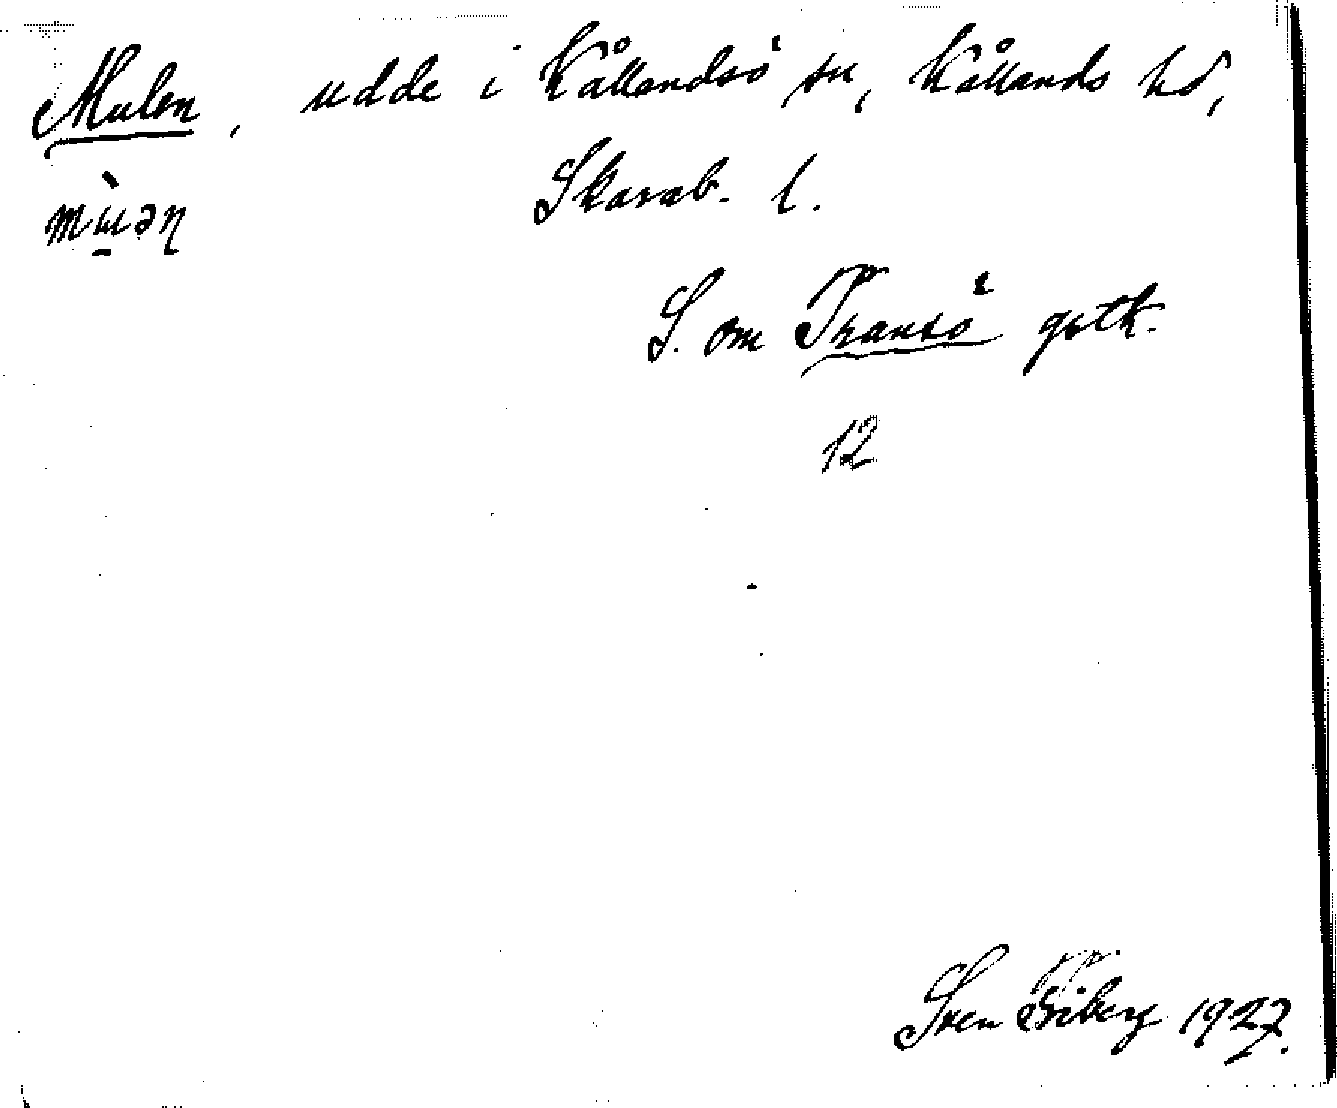 Mulen, udde i Kållandsö sn, Kållands hd,
Skarab. l.
S. om Transö gstk.
12
Sven 1927.